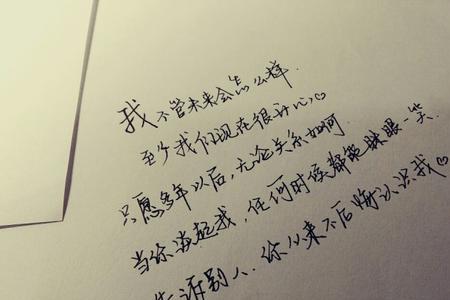 我不管未来会怎么样.
至少我们现在很开心♡
只愿多年以后,无论关系如何
当你想起我,任何时候都能眯眼一笑.
告诉别人.你从来不后悔认识我♡